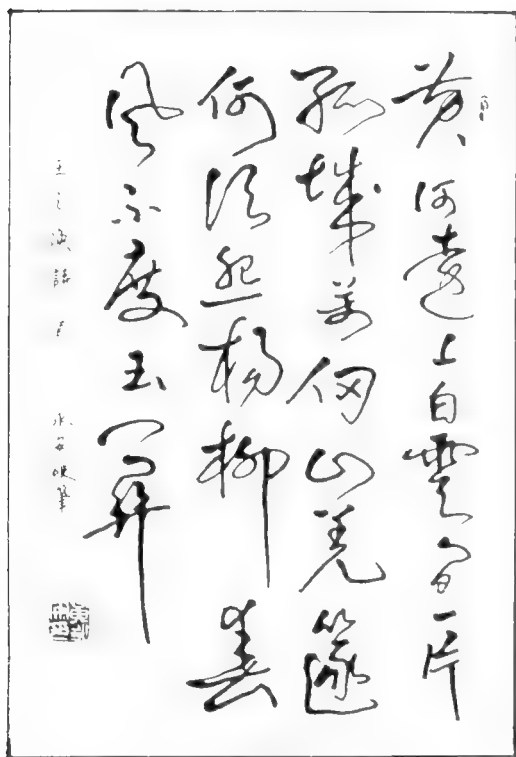 黄河遠上白雲間一片
孤城萬仞山羌篴
何須怨楊柳春
風不度玉門關
王之渙詩 硬筆